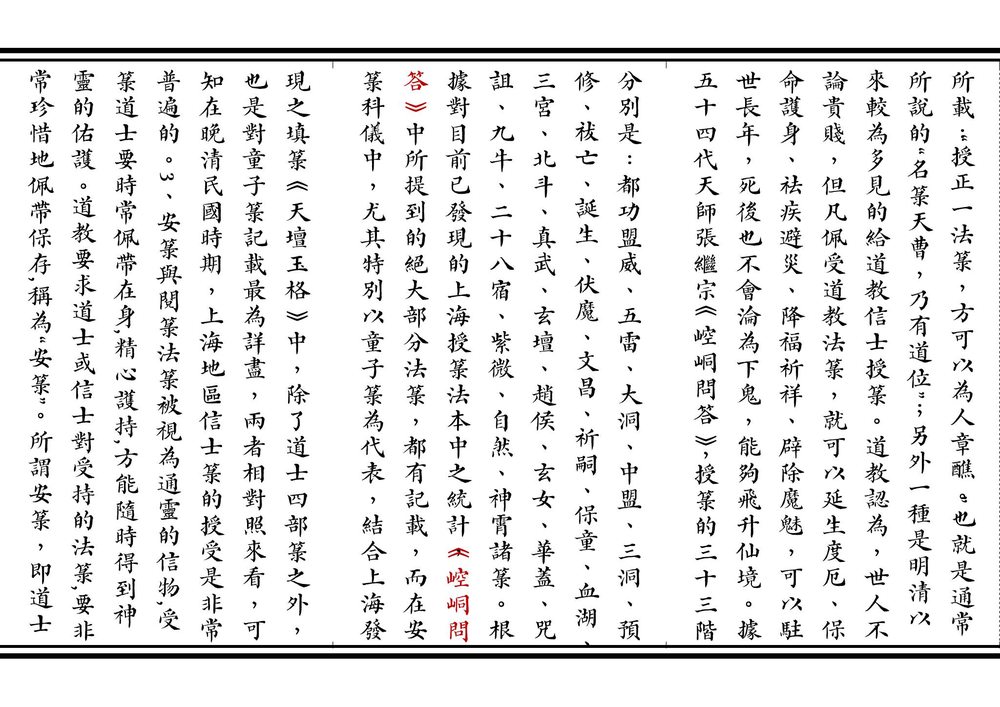 所載：“授正一法箓，方可以為人章醮。也就是通常
所說的“名箓天曹，乃有道位”；另外一種是明清以
來較為多見的給道教信士授箓。道教認為，世人不
論貴賤，但凡佩受道教法箓，就可以延生度厄、保
命護身、祛疾避災、降福祈祥、辟除魔魅，可以駐
世長年，死後也不會淪為下鬼，能夠飛升仙境。據
五十四代天師張繼宗《崆峒問答》，授箓的三十三階
分別是：都功盟威、五雷、大洞、中盟、三洞、預
修、祓亡、誕生、伏魔、文昌、祈嗣、保童、血湖、
三宫、北斗、真武、玄壇、趙侯、玄女、華蓋、咒
詛、九牛、二十八宿、紫微、自然、神霄諸箓。根
據對目前已發現的上海授箓法本中之統計《崆峒問
答》中所提到的絕大部分法箓，都有記載，而在安
箓科儀中，尤其特別以童子箓為代表，結合上海發
現之填箓《天壇玉格》中，除了道士四部箓之外，
也是對童子箓記載最為詳盡，兩者相對照來看，可
知在晚清民國時期，上海地區信士箓的授受是非常
普遍的。3、安箓與閱箓法箓被視為通靈的信物,受
箓道士要時常佩帶在身,精心護持,方能隨時得到神
靈的佑護。道教要求道士或信士對受持的法箓,要非
常珍惜地佩帶保存,稱為“安箓”。所謂安箓，即道士